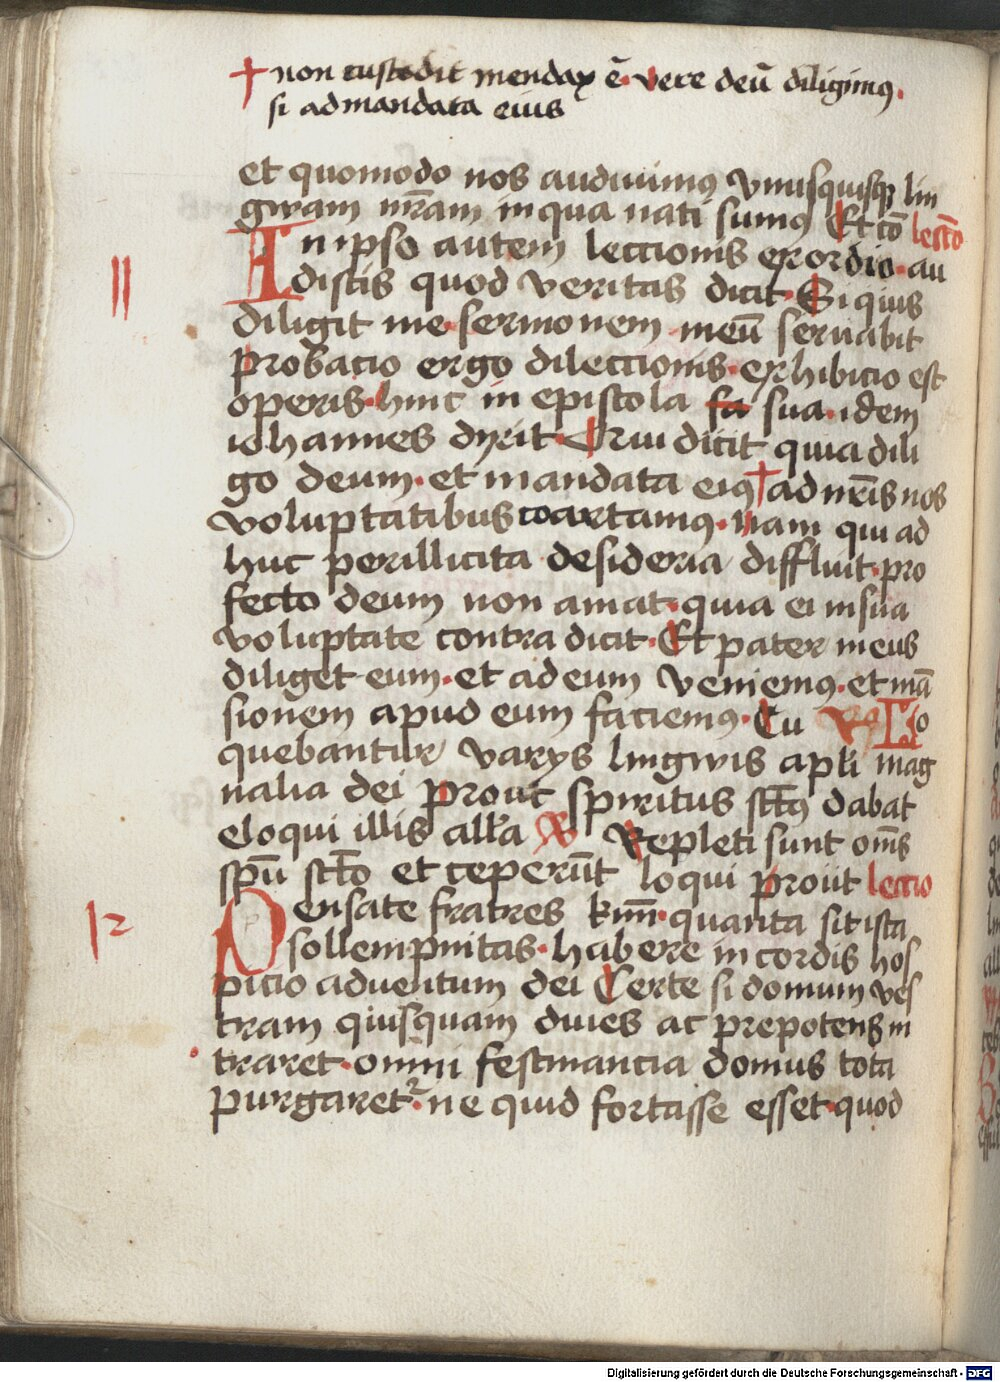 † non custodit mendax ē. vere deū diligimꝰ.
si ad mandata eius
et quomodo nos audiuimꝰ vnusquisqꝫ lin
gwam nr̄am in qua nati sumꝰ Et cō lectō
In ipso autem leccionis exordio. au
11
distis quod veritas dicit. Si quis
diligit me. sermonem meū seruabit
probacio ergo dileccionis. exhibicio est
operis. hinc in epistola sua. idem
iohannes dyxit. Qui dicit quia dili
go deum. et mandata eiꝰ † ad nr̄is nos
voluptatibus coartamꝰ. nam qui ad
huc per illicita desideria diffluit. pro
fecto deum non amat. quia ei in sua
voluptate contra dicit. Et pater meus
diliget eum. et ad eum veniemꝰ. et mā
sionem apud eum faciemꝰ. Tu Lo
quebantur varys lingwis apl̄i mag
nalia dei prout spiritus sctꝰ dabat
eloqui illis all̄a V Repleti sunt om̄s
spū sctō et ceperūt loqui proūt leccio
12
Pensate fratres km̄. quanta sit ista
sollempnitas. habere in cordis hos
picio aduentum dei Certe si domum ves
tram quisquam diues ac prepotens in
traret. omni festinancia domus tota
purgaret². ne quid fortasse esset. quod
Digitalisierung gefördert durch die Deutsche Forschungsgemeinschaft - DFG